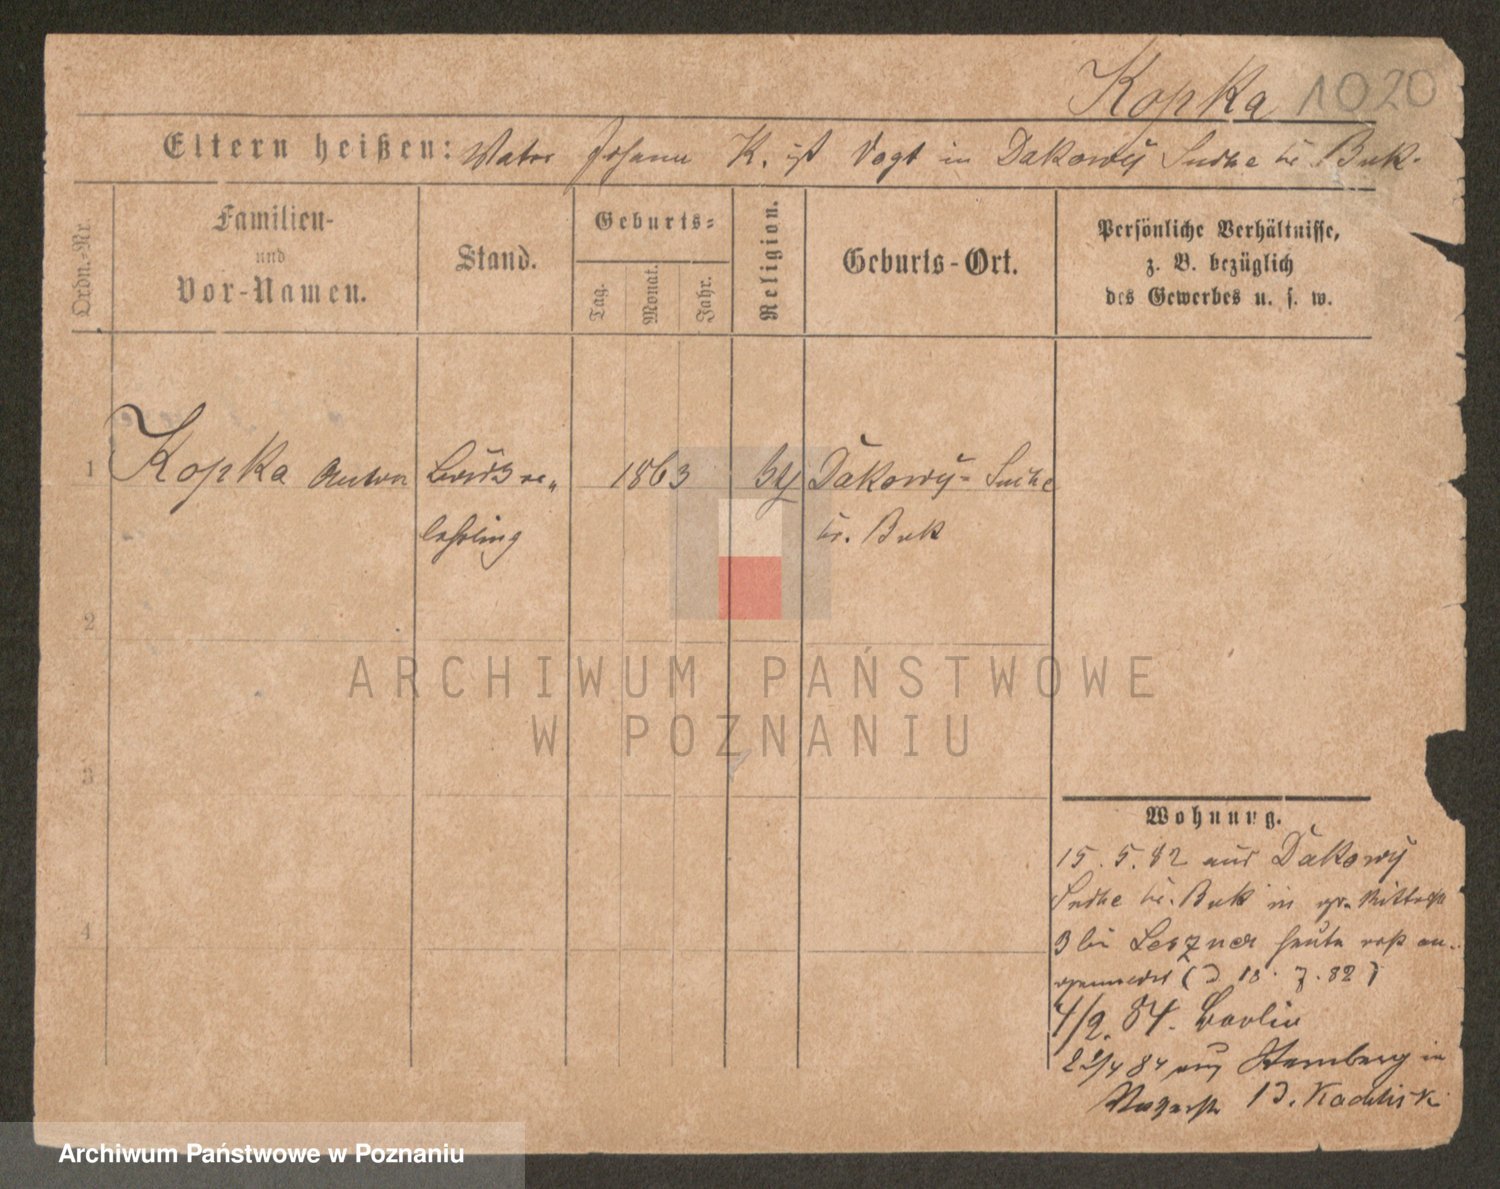 Kopka 1020
Eltern heißen: Vater Johann K. ist Vogt in Dakowy Suche Kr. Buk.
Ordn.-Nr.
Familien-
und
Vor-Namen.
Stand.
Geburts-
Tag. Monat. Jahr.
Religion.
Geburts-Ort.
Persönliche Verhältnisse,
z. B. bezüglich
des Gewerbes u. s. w.
1 Kopka Anton 1863 Dakowy-Suche
lehrling Kr. Buk
2
3
4
ARCHIWUM PAŃSTWOWE
W POZNANIU
Wohnung.
15. 5. 82 aus Dakowy
Suche Kr. Buk in gr. Ritterstr
3 bei heute erst an-
gemeldet ( 18. 7. 82 )
4/2. 84. Berlin
22/4 84 aus in
13.
Archiwum Państwowe w Poznaniu